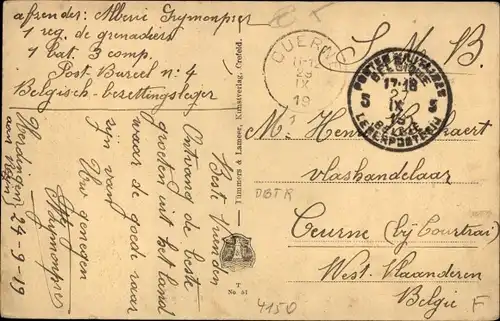 afzender: Alberic Grymonprez
1 reg. de grenadiers
1 bat. 3 comp.
Post-Bureel n: 4
Belgisch-bezettingsleger
S. M. B.
CUERNE
29
IX
19
1
POSTES MILITAIRES
BELGIQUE
17-18
IX
5 5
BELGIE
LEGERPOSTERIJ
M. Henri
vlashandelaar
Ceurne (bij Courtrai)
West-Vlaanderen
Belgie
Beste vrienden
Ontvang de beste
groeten uit het land
waar de goede raar
zijn van
Uw genegen
Grymonprez
Uerdingen 24-9-19
aan Rhein
Tümmers & Lameer, Kunstverlag, Crefeld.
T
No. 51
DBTR
4150
F